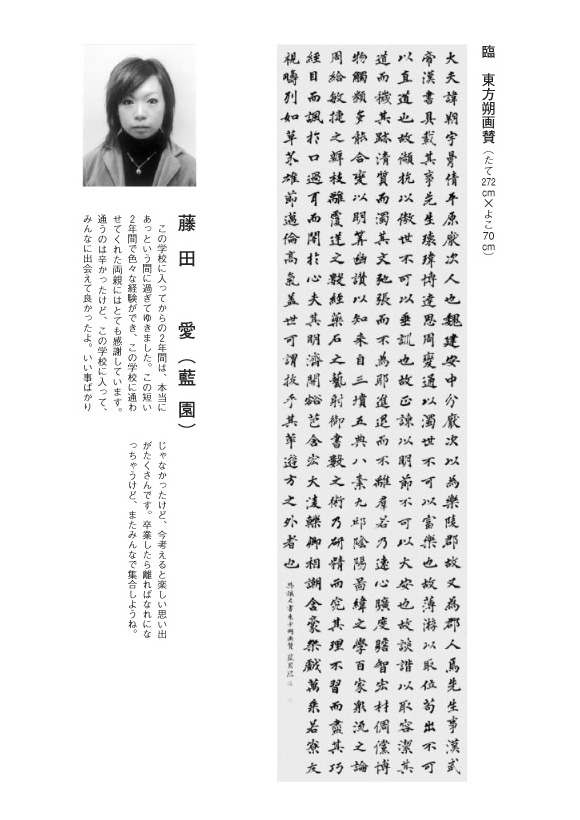 臨　東方朔画賛（たて272cm×よこ70cm）
大夫諱朔字曼倩平原厭次人也魏建安中分厭次以為樂陵郡故又為郡人焉先生事漢武
帝漢書具載其事先生瓌瑋博達思周變通以濁世不可以富樂也故薄游以取位苟出不可
以直道也故頡抗以傲世不可以垂訓也故正諫以明節不可以久安也故談諧以取容潔其
道而穢其跡清質而濁其文弛張而不為耶進退而不離羣若乃遠心曠度贍智宏材倜儻博
物觸類多能合變以明筭幽讚以知来自三墳五典八素九邱陰陽圖緯之學百家衆流之論
周給敏捷之辯枝離覆逆之數經藥石之藝射御書數之術乃研精而究其理不習而盡其巧
經目而諷於口過耳而闇於心夫其明濟開豁苞含宏大凌轢卿相謿含豪桀戲萬乘若寮友
視疇列如草芥雄節邁倫高氣蓋世可謂拔乎其萃遊方之外者也
藤田　愛（藍園）
この学校に入ってからの２年間は、本当に
あっという間に過ぎてゆきました。この短い
２年間で色々な経験ができ、この学校に通わ
せてくれた両親にはとても感謝しています。
通うのは辛かったけど、この学校に入って、
みんなに出会えて良かったよ。いい事ばかり
じゃなかったけど、今考えると楽しい思い出
がたくさんです。卒業したら離ればなれにな
っちゃうけど、またみんなで集合しようね。